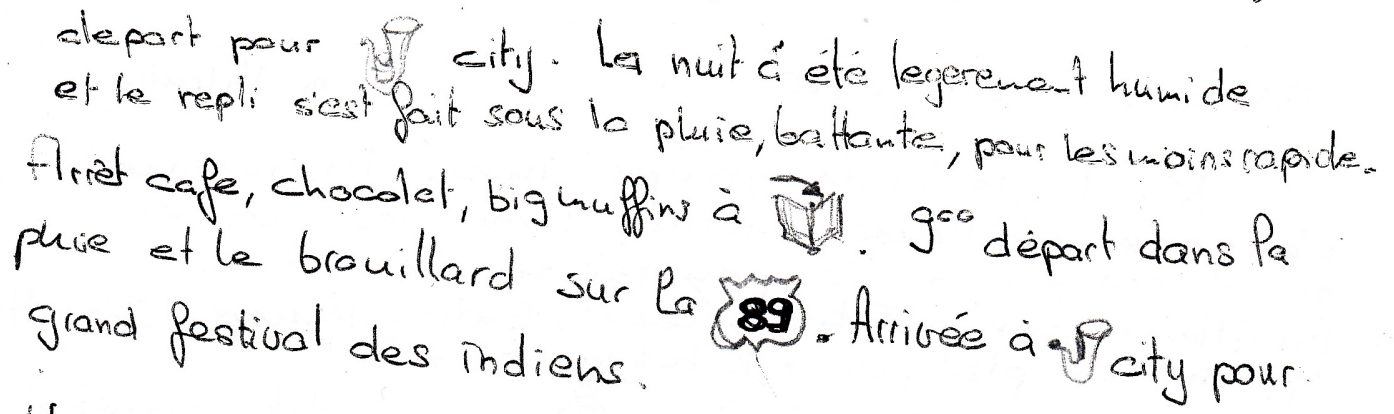 depart pour city. La nuit à été legerement humide
et le repli s'est fait sous la pluie, battante, pour les moins rapide.
Arrêt cafe, chocolat, big muffins à . 9ᵒᵒ départ dans la
pluie et le brouillard sur la 89. Arrivée à city pour
grand festival des indiens.